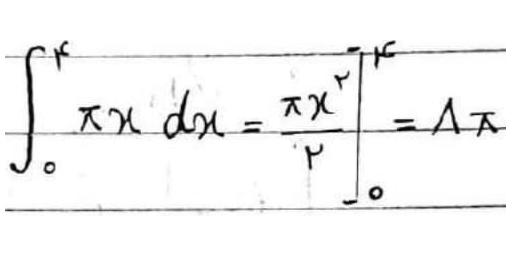 ∫₀^۴ πx dx = πx^۲/۲ ]₀^۴ = ۸π